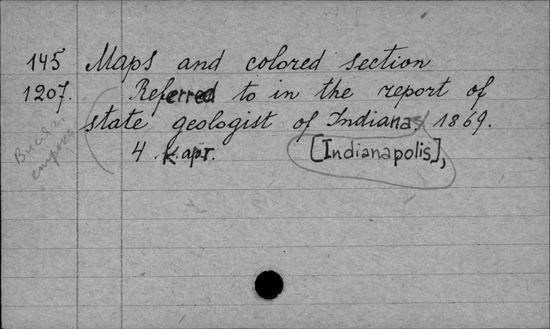 145 Maps and colored section
1207. Referred to in the report of
state geologist of Indiana, 1869.
4 карт. [Indianapolis],